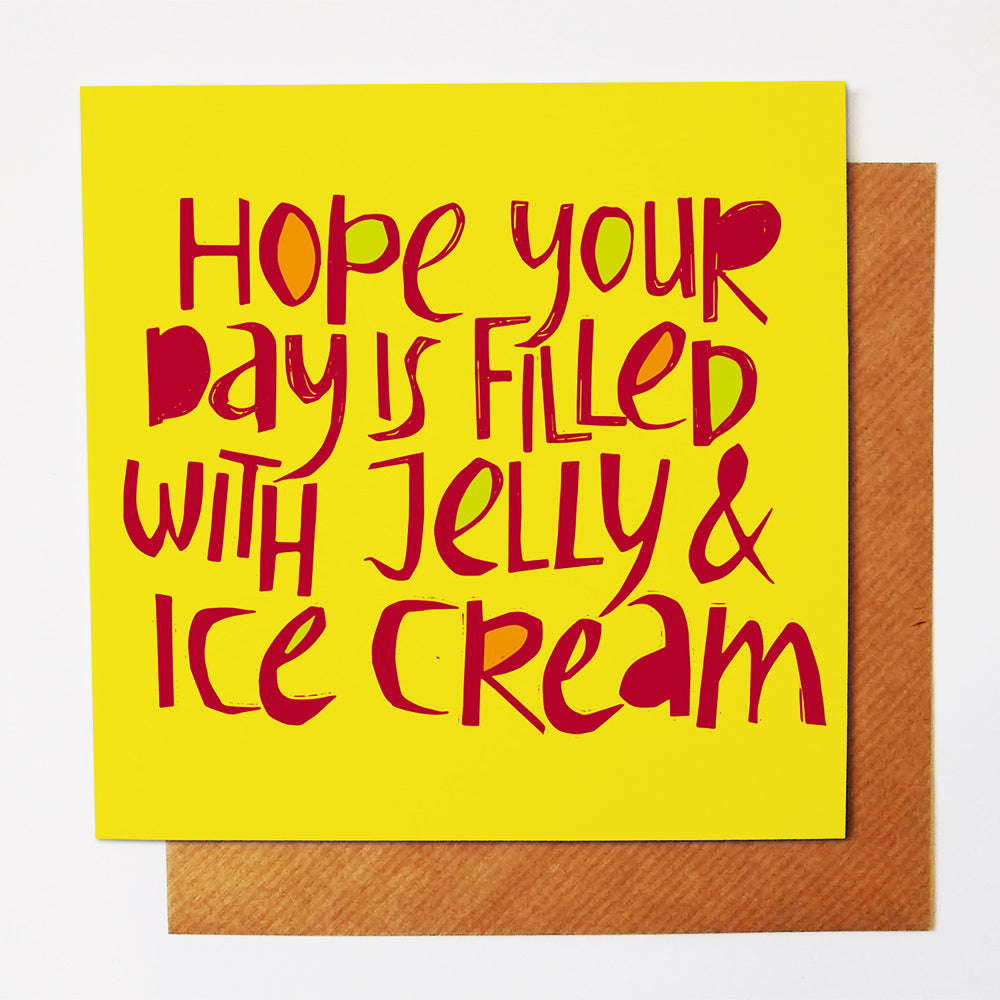 HOPE YOUR
DAY IS FILLED
WITH JELLY &
ICE CREAM